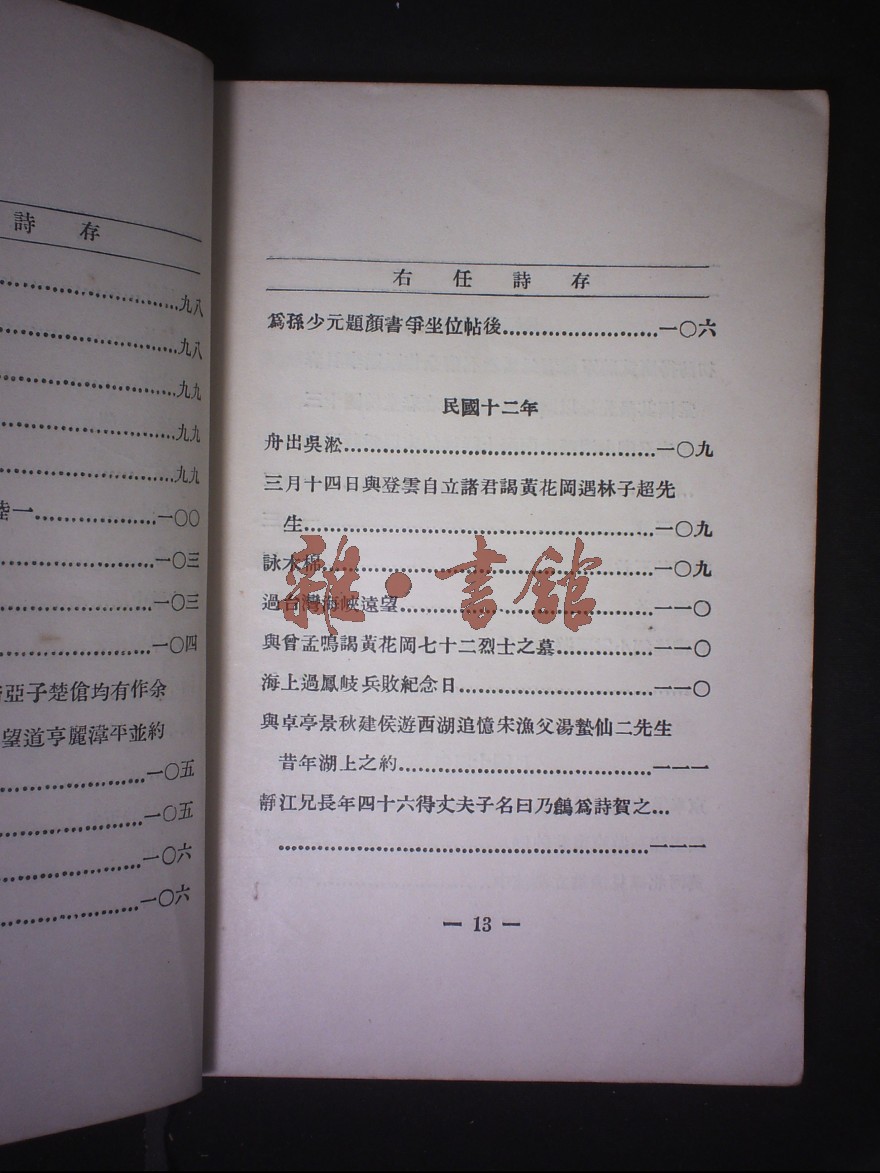 詩存
九八
九八
九九
九九
九九
一……一〇〇
一〇三
一〇三
一〇四
亞子楚傖均有作余
望道亨麗漳平並約
一〇五
一〇五
一〇六
一〇六
右任詩存
爲孫少元題顏書爭坐位帖後……一〇六
民國十二年
舟出吳淞……一〇九
三月十四日與登雲自立諸君謁黃花岡遇林子超先
生……一〇九
詠木棉……一〇九
過台灣海峽遠望……一一〇
與曾孟鳴謁黃花岡七十二烈士之墓……一一〇
海上過鳳岐兵敗紀念日……一一〇
與卓亭景秋建侯遊西湖追憶宋漁父湯蟄仙二先生
昔年湖上之約……一一一
靜江兄長年四十六得丈夫子名曰乃鷁爲詩賀之…
……一一一
— 13 —
雜·書館